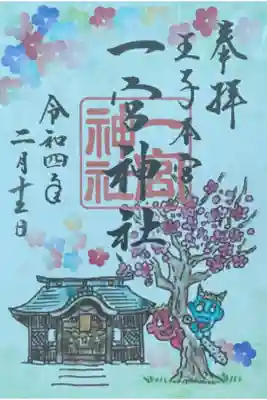 奉拝
王子本宮
一宮神社
令和四年
二月十三日
一宮
神社